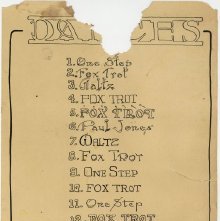 DANCES
1. One Step
2. Fox Trot
3. Waltz
4. FOX TROT
5. FOX TROT
6. Paul Jones
7. WALTZ
8. Fox Trot
9. ONE STEP
10. FOX TROT
11. One Step
12. FOX TROT